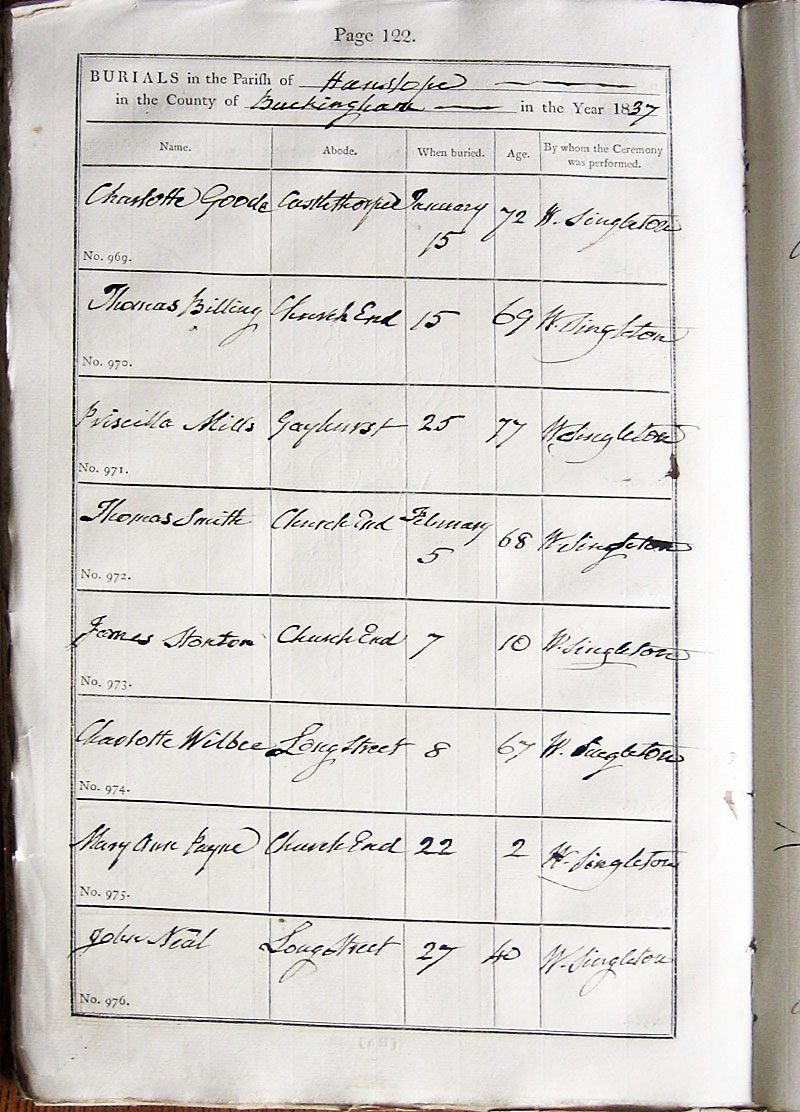 Page 122.
BURIALS in the Parish of Hanslope
in the County of Buckingham in the Year 1837
Name. Abode. When buried. Age. By whom the Ceremony was performed.
Charlotte Goode Castlethorpe January 15 72 W. Singleton
No. 969.
Thomas Billing Church End 15 69 W. Singleton
No. 970.
Priscilla Mills Gayhurst 25 77 W Singleton
No. 971.
Thomas Smith Church End February 5 68 W Singleton
No. 972.
James Stonton Church End 7 10 W. Singleton
No. 973.
Charlotte Wilbee Long Street 8 67 W. Singleton
No. 974.
Mary Ann Payne Church End 22 2 W. Singleton
No. 975.
John Neal Long Street 27 40 W. Singleton
No. 976.